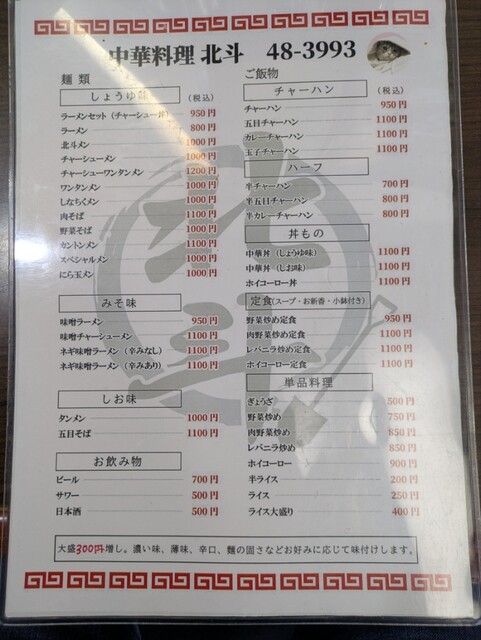 中華料理 北斗 48-3993
麺類
しょうゆ味 (税込)
ラーメンセット（チャーシュー丼） 950円
ラーメン 800円
北斗メン 1000円
チャーシューメン 1000円
チャーシューワンタンメン 1200円
ワンタンメン 1000円
しなちくメン 1000円
肉そば 1100円
野菜そば 1000円
カントンメン 1100円
スペシャルメン 1000円
にら玉メン 1000円
みそ味
味噌ラーメン 950円
味噌チャーシューメン 1100円
ネギ味噌ラーメン（辛みなし） 1100円
ネギ味噌ラーメン（辛みあり） 1100円
しお味
タンメン 1000円
五目そば 1100円
お飲み物
ビール 700円
サワー 500円
日本酒 500円
ご飯物
チャーハン (税込)
チャーハン 950円
五目チャーハン 1100円
カレーチャーハン 1100円
玉子チャーハン 1100円
ハーフ
半チャーハン 700円
半五目チャーハン 800円
半カレーチャーハン 800円
丼もの
中華丼（しょうゆ味） 1100円
中華丼（しお味） 1100円
ホイコーロー丼 1100円
定食(スープ・お新香・小鉢付き)
野菜炒め定食 950円
肉野菜炒め定食 1100円
レバニラ炒め定食 1100円
ホイコーロー定食 1100円
単品料理
ぎょうざ 500円
野菜炒め 750円
肉野菜炒め 850円
レバニラ炒め 850円
ホイコーロー 900円
半ライス 200円
ライス 250円
ライス大盛り 400円
大盛300円増し。濃い味、薄味、辛口、麺の固さなどお好みに応じて味付けします。